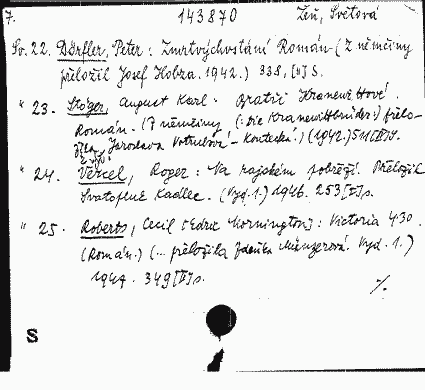 7. 143870 Žeň, Světová
Sv. 22. Dörfler, Peter: Zmrtvýchvstání Román. (Z němčiny
přeložil Josef Hobza. 1942.) 338, [II] S.
" 23. Stöger, August Karl. Bratři Kranewittové.
Román. (Z němčiny (: Die Kranewittbrüder :) přelo-
žila Jaroslava Votrubová-Koutecká.) (1942.) 511 [II] s.
" 24. Vercel, Roger: Na rajském pobřeží. Přeložil
Svatopluk Kadlec. (Vyd. 1.) 1946. 253 [II] s.
" 25. Roberts, Cecil [Edric Mornington]: Victoria 4.30.
(Román.) (... přeložila Zdenka Münzerová. Vyd. 1.)
1947. 349 [II] s.
./.
S